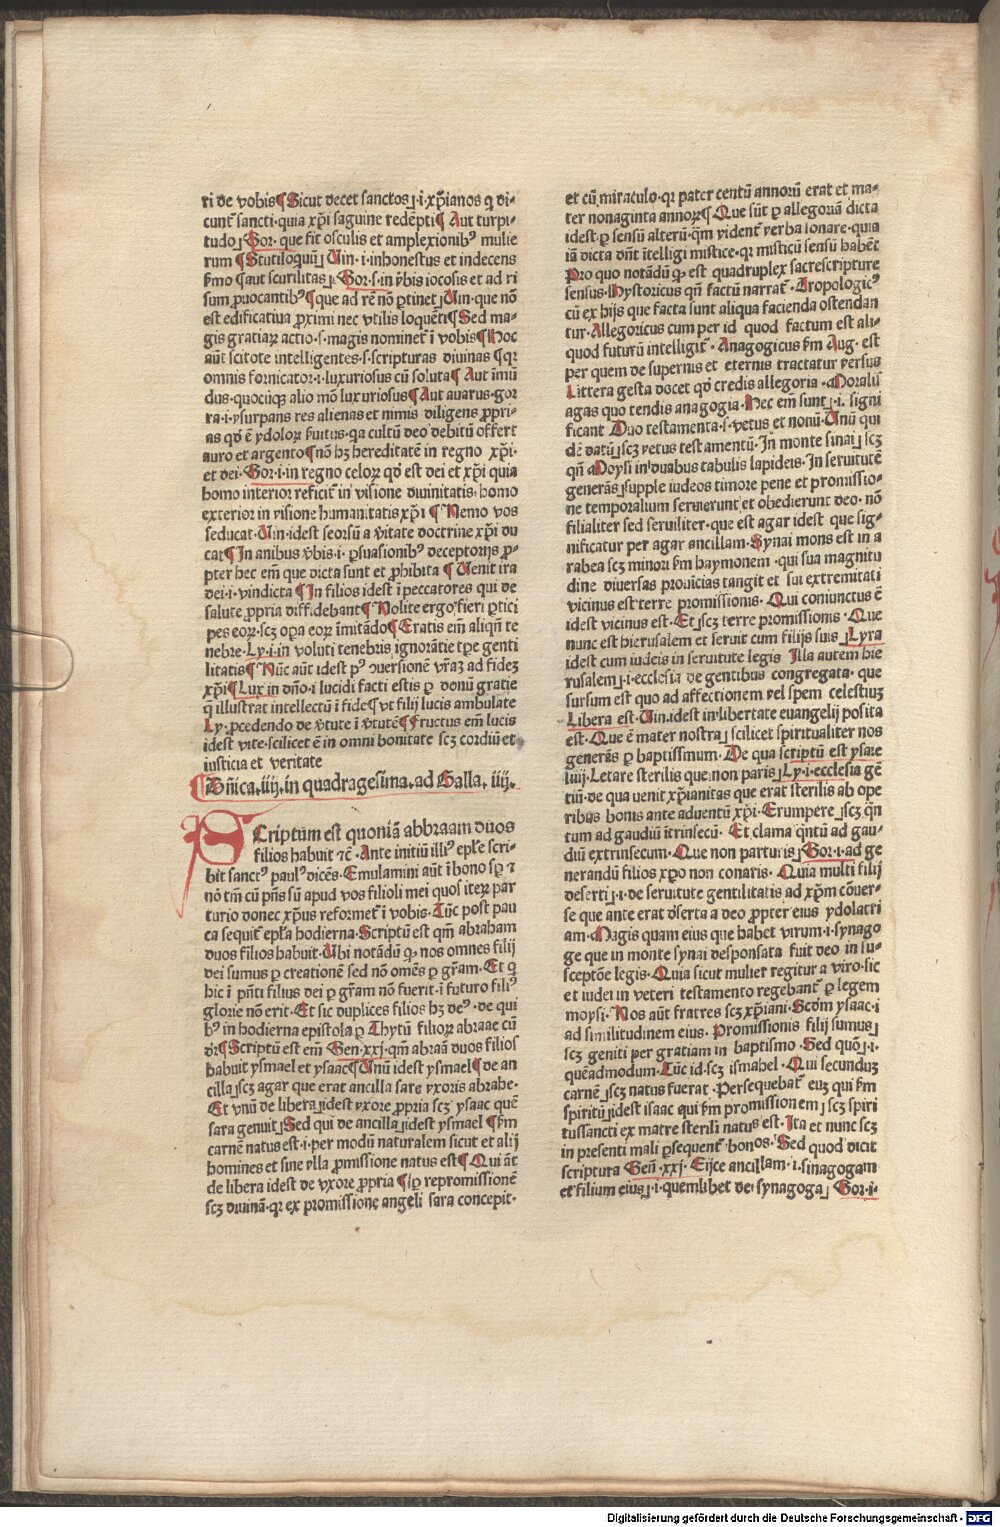 ri de vobis¶Sicut decet sanctos˩.i.xp̄ianos q̨ di⸗
cunt̄ sancti.quia xp̄i sāguine redēpti¶ Aut turpi⸗
tudo˩Gor. que fit osculis et amplexionibꝰ mulie
rum ¶Stutiloquiū˩ Uin.i.inhonestus et indecens
ẜmo ¶aut scurilitas˩.Gor.s.in v̄bis iocosis et ad ri
sum ꝓuocantibꝰ¶que ad rē nō ꝑtinet˩Uin.que nō
est edificatiua ꝓximi nec vtilis loquēti¶Sed ma⸗
gis gratiaꝝ actio.s.magis nominet̄ ī vobis¶Hoc
aūt scitote intelligentes.s.scripturas diuinas ¶qꝛ
omnis fornicator.i.luxuriosus cū soluta¶ Aut īmū
dus.quocūqꝫ alio mō luxuriosus¶Aut auarus.gor
ra.i.vsurpans res alienas et nimis diligens ꝓpri⸗
as qd̄ ē ydoloꝝ ẜuitus.qa cultū deo debitū offert
auro et argento¶nō hꝫ hereditatē in regno xp̄i.
et dei.Gor.i.in regno celoꝝ qd̄ est dei et xp̄i quia
homo interior reficit̄ in visione diuinitatis.homo
exterior in visione humanitatis xp̄i ¶Nemo vos
seducat.Uin.idest seorsū a v̄itate doctrine xp̄i du
cat¶In anibus v̄bis.i. ꝑsuasionibꝰ deceptorijs ꝓ⸗
pter hec em̄ que dicta sunt et ꝓhibita ¶Uenit ira
dei.i.vindicta ¶In filios idest ī peccatores qui de
salute ꝓpria diffidebant¶Nolite ergo fieri ꝑtici
pes eoꝝ.scꝫ oꝑa eoꝝ īmitādo¶Eratis em̄ aliqn̄ te
nebre.Ly.i.in voluti tenebris ignorātie tꝑe genti
litatis¶Nūc aūt idest pꝰ ꝯuersionē vr̄aꝫ ad fideꝫ
xp̄i¶Lux in dn̄o.i lucidi facti estis ꝑ donū gratie
q̄ illustrat intellectū ī fide¶vt filij lucis ambulate
Ly.ꝓcedendo de v̄tute ī v̄tutē¶fructus em̄ lucis
idest vite.scilicet ē in omni bonitate scꝫ cordiū et
iusticia et veritate
¶Dn̄ica.iiij.in quadragesima.ad Galla. iiij.
Scriptum est quoniā abbraam duos
filios habuit ⁊c̄ .Ante initiū illiꝰ eple scri⸗
bit sanctꝰ paulꝰ dicēs.Emulamini aūt ī bono sꝑ ⁊
nō tm̄ cū pn̄s sū apud vos filioli mei quos iteꝝ par
turio donec xp̄us reformet̄ ī vobis.Tūc post pau
ca sequit̄ epl̄a hodierna.Scriptū est qm̄ abraham
duos filios habuit.Ubi notādū qꝫ nos omnes filij
dei sumus ꝑ creationē sed nō omēs ꝑ gr̄am.Et q̄
hic ī pn̄ti filius dei ꝑ gr̄am nō fuerit.ī futuro filiꝰ
glorie nō erit.Et sic duplices filios hꝫ deꝰ.de qui
bꝰ in hodierna epistola ꝑ Thytū filioꝝ abraae cū
dr̄¶Scriptū est em̄ Gen.xxj.qm̄ abraā duos filios
habuit ysmael et ysaac¶Unū idest ysmael¶de an
cilla˩scꝫ agar que erat ancilla sare vxoris abrahe.
Et vnū de libera˩idest vxore ꝓpria scꝫ ysaac quē
sara genuit˩Sed qui de ancilla˩idest ysmael ¶ẜm
carnē natus est.i.per modū naturalem sicut et alij
homines et sine vlla ꝓmissione natus est¶Qui aūt
de libera idest de vxore ꝓpria ¶sꝑ repromissionē
scꝫ diuinā.qꝛ ex promissione angeli sara concepit.
et cū miraculo.qꝛ pater centū annorū erat et ma⸗
ter nonaginta annoꝝ¶Que sūt ꝑ allegoriā dicta
idest.ꝑ sensū alterū.q̄m vident̄ verba sonare.quia
iā dicta dn̄t ītelligi mistice.qꝛ misticū sensū habēt
Pro quo notādū qꝫ est quadruplex sacrescripture
sensus.Hystoricus qn̄ factū narrat̄.Tropologicꝰ
cū ex hijs que facta sunt aliqua facienda ostendan
tur.Allegoricus cum per id quod factum est ali⸗
quod futurū intelligit̄.Anagogicus ẜm Aug. est
per quem de supernis et eternis tractatur versus
Littera gesta docet qd̄ credis allegoria.Moralis
agas quo tendis anagogia.Hec em̄ sunt˩.i. signi
ficant Duo testamenta.s.vetus et nouū.Unū qui
dē datū˩scꝫ vetus testamentū.In monte sinai˩scꝫ
qn̄ Moysi in duabus tabulis lapideis.In seruitutē
generās˩supple iudeos timore pene et promissio⸗
ne temporalium seruierunt et obedierunt deo.nō
filialiter sed seruiliter.que est agar idest que sig⸗
nificatur per agar ancillam.Synai mons est in a
rabea scꝫ minori ẜm haymonem.qui sua magnitu
dine diuersas prouīcias tangit et sui extremitati
vicinus est terre promissionis.Qui coniunctus ē
idest vicinus est.Et˩scꝫ terre promissionis.Que
nunc est hierusalem et seruit cum filijs suis˩Lyra
idest cum iudeis in seruitute legis Illa autem hie
rusalem˩.i.ecclesia de gentibus congregata.que
sursum est quo ad affectionem vel spem celestiuꝫ
Libera est.Uin.idest in libertate euangelij posita
est.Que ē mater nostra˩scilicet spiritualiter nos
generās ꝑ baptissmum.De qua scriptū est ysaie
liiij.Letare sterilis que non paris˩Ly.i.ecclesia gē
tiū.de qua venit xp̄ianitas que erat sterilis ab ope
ribus bonis ante aduentū xp̄i.Erumpere˩scꝫ q̄n
tum ad gaudiū ītrinsecū. Et clama q̄ntū ad gau⸗
diū extrinsecum.Que non parturis˩Gor.i.ad ge
nerandū filios xp̄o non conaris.Quia multi filij
deserti˩.i.de seruitute gentilitatis ad xp̄m cōuer⸗
se que ante erat d̄serta a deo ꝓpter eius ydolatri
am.Magis quam eius que habet virum.i.synago
ge que in monte synai desponsata fuit deo in su⸗
sceptōe legis.Quia sicut mulier regitur a viro.sic
et iudei in veteri testamento regebant̄ ꝑ legem
moysi.Nos aūt fratres scꝫ xp̄iani.Scdm̄ ysaac.i
ad similitudinem eius.Promissionis filij sumus˩
scꝫ geniti per gratiam in baptismo.Sed quō˩.i.
quēadmodum.Tūc id.scꝫ ismahel.Qui secunduꝫ
carnē˩scꝫ natus fuerat.Persequebat̄ euꝫ qui ẜm
spiritū˩idest isaac qui ẜm promissionem˩scꝫ spiri
tussancti ex matre sterili natus est.Ita et nunc scꝫ
in presenti mali ꝑsequent̄ bonos.Sed quod dicit
scriptura Gen̄.xxj.Eijce ancillam.i.sinagogam
et filium eius˩.i.quemlibet de synagoga˩ Gor.i.
Digitalisierung gefördert durch die Deutsche Forschungsgemeinschaft - DFG